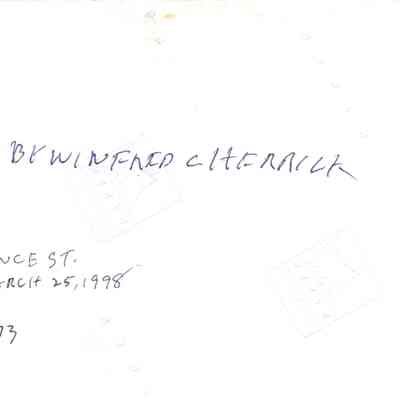 BY WINFRED CHERRICK
NCE ST.
ARCH 25, 1998
73